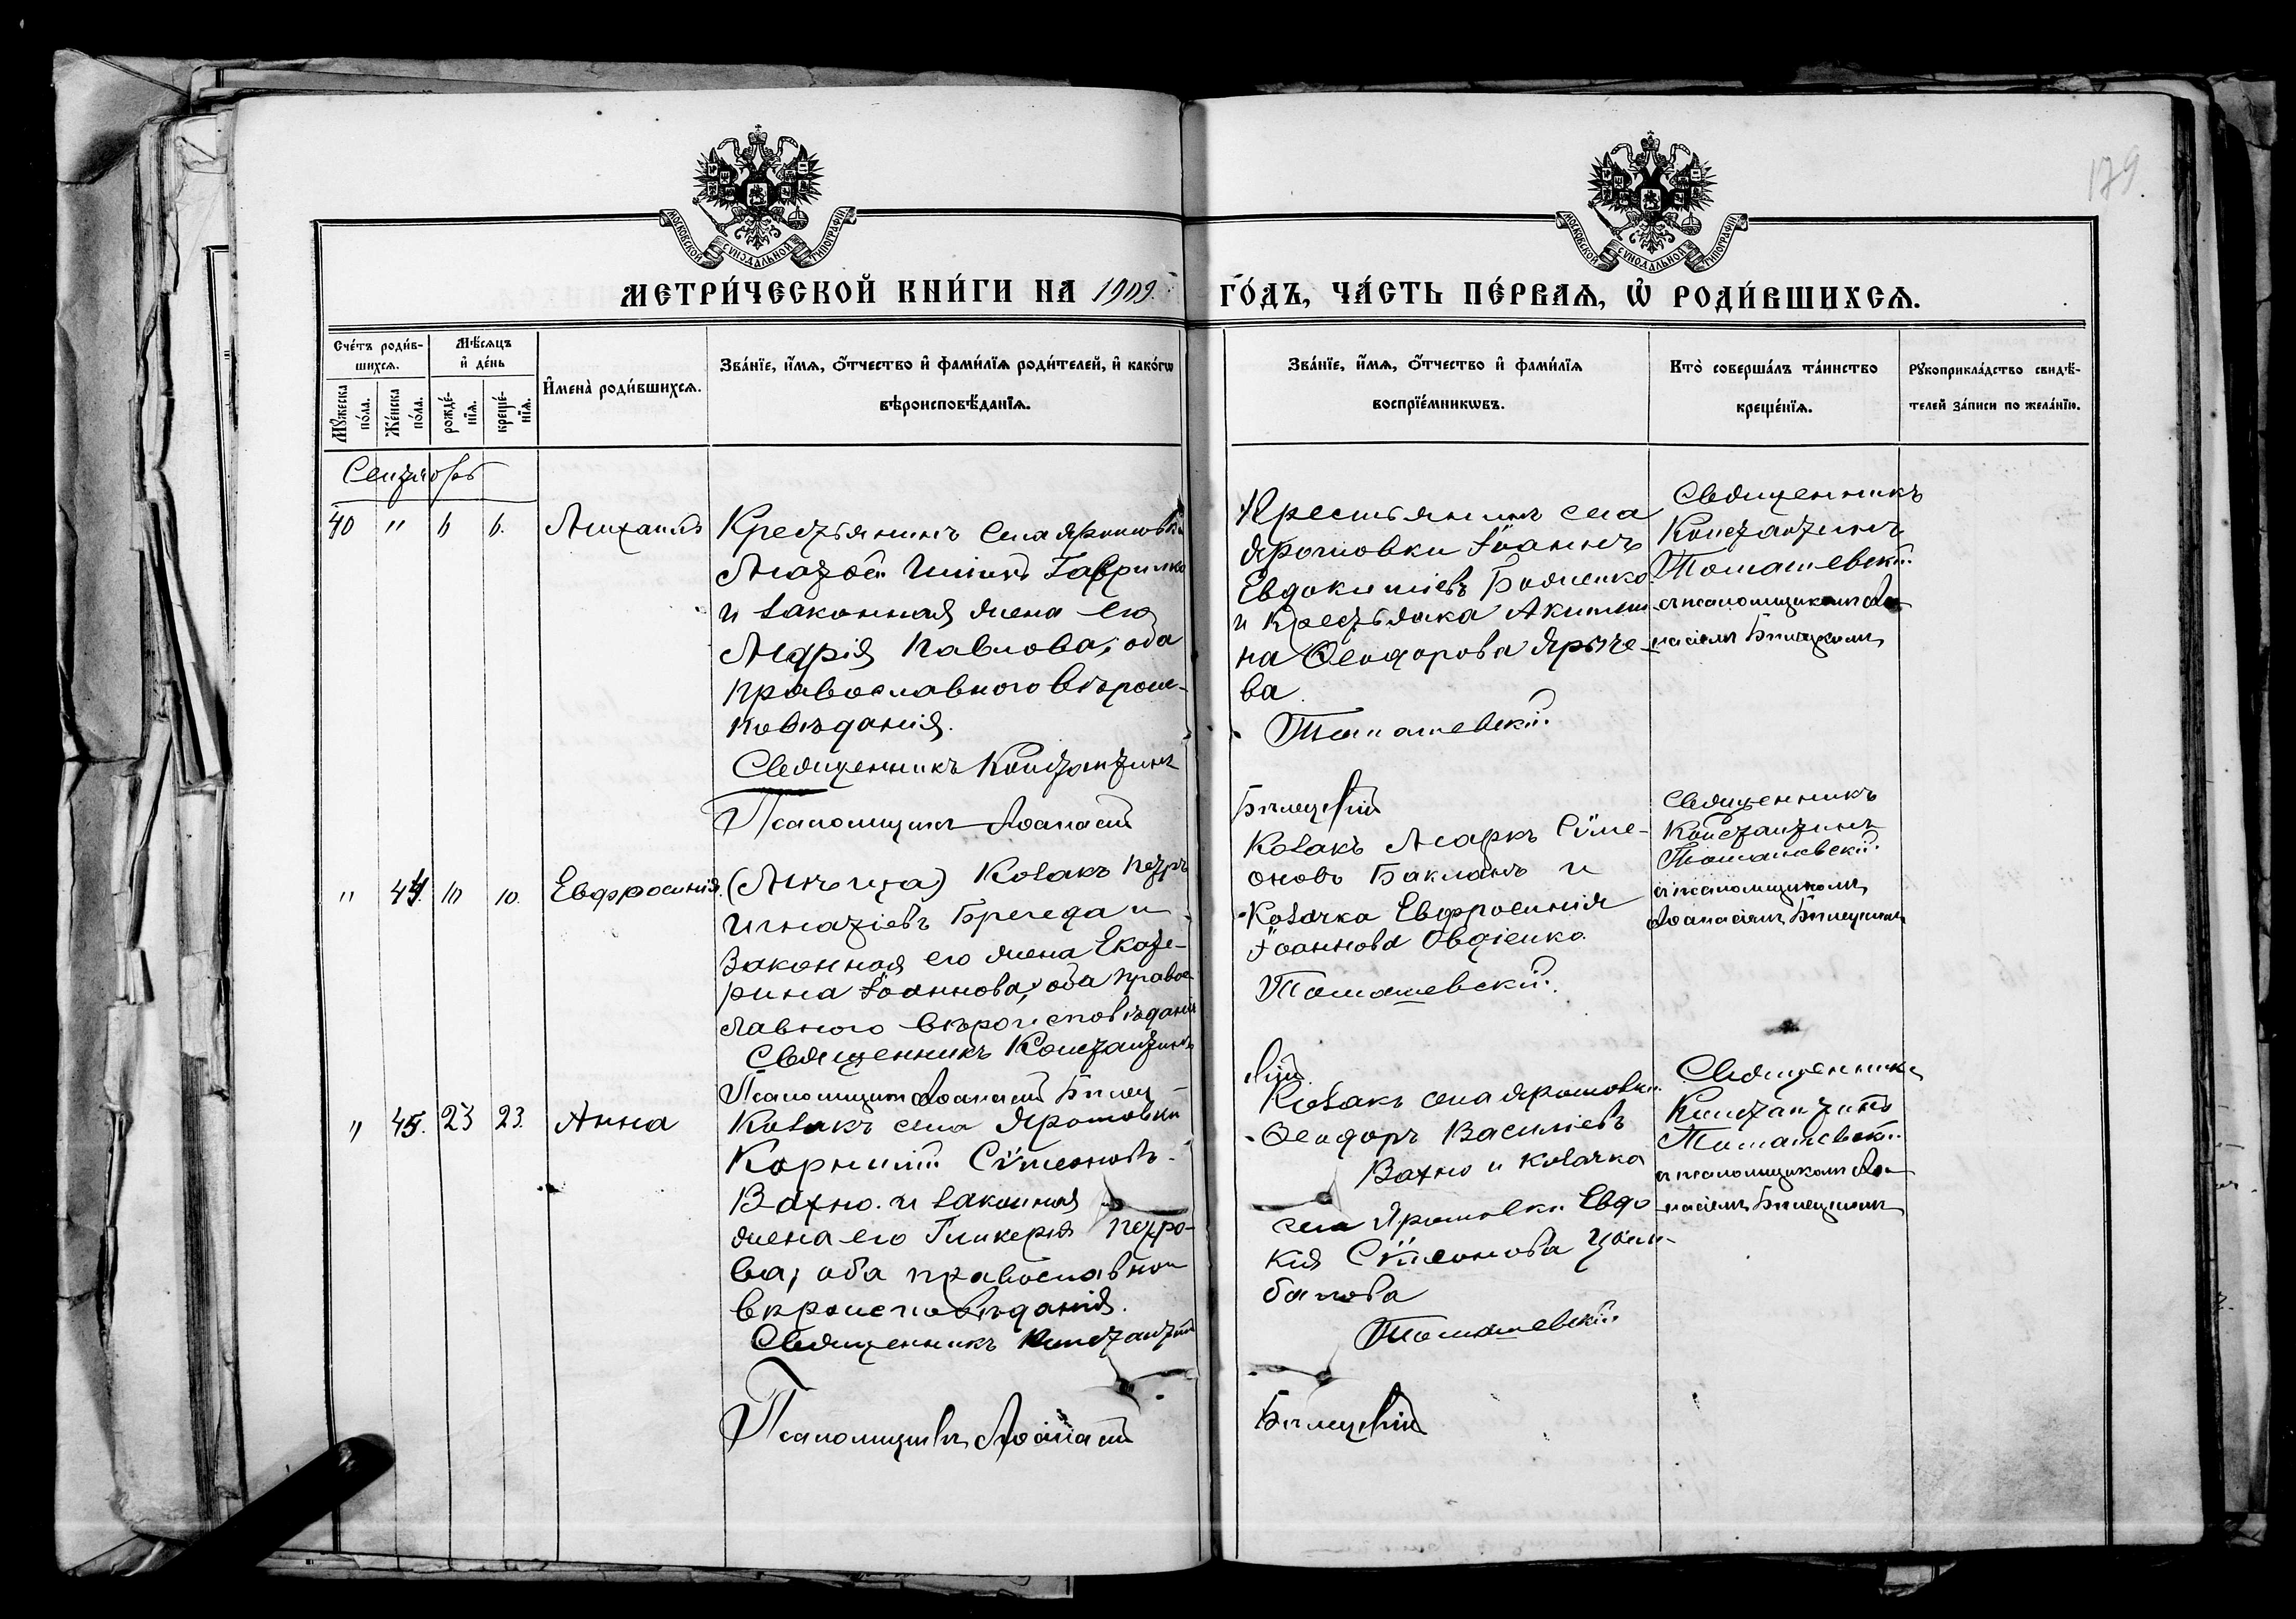 179
МОСКОВСКОЙ СѴНОДАЛЬНОЙ ТИПОГРАФІИ
МОСКОВСКОЙ СѴНОДАЛЬНОЙ ТИПОГРАФІИ
МЕТРИ́ЧЕСКОЙ КНИ́ГИ НА 1909. ГО́ДЪ, ЧА́СТЬ ПЕ́РВАѦ, Ѽ РОДИ́ВШИХСѦ.
Сче́тъ роди́в-
шихсѧ.
Мꙋ́жеска по́ла.
Же́нска по́ла.
Мѣ́сѧцъ
и҆ де́нь
рожде́-
нїѧ.
креще́-
нїѧ.
И҆мена̀ роди́вшихсѧ.
Зва́нїе, и҆́мѧ, ѻ҆́тчество и҆ фами́лїѧ роди́телей, и҆ како́гѡ
вѣроисповѣ́данїѧ.
Зва́нїе, и҆́мѧ, ѻ҆́тчество и҆ фами́лїѧ
воспрїе́мникѡвъ.
Кто̀ соверша́лъ та́инство
креще́нїѧ.
Рꙋкоприкла́дство свидѣ́-
телей за́писи по жела́нїю.
Сентябрь
40 " 6 6. Михаилъ
Крестьянинъ села Ярошовки
и законная жена его
Марія Павлова, оба
православнаго вѣроис-
повѣданія.
Священникъ Константинъ
Псаломщикъ Аѳанасій
Крестьянинъ села
Ярошовки Іоаннъ
Евдокимовъ
и Крестьянка Акили-
на Ѳеодорова Яроше-
ва
Томашевскій.
Билецкій
Священникъ
Константинъ
Томашевскій
съ псаломщикомъ Аѳа-
насіемъ Билецкимъ
" 44. 10 10. Евфросинія.
Козакъ Петръ
Игнатіевъ Брегеда и
законная его жена Екате-
рина Іоаннова, оба право-
славнаго вѣроисповѣданія
Священникъ Константинъ
Псаломщикъ Аѳанасій Билец-
Козакъ Маркъ Сѵме-
оновъ Бакланъ и
Козачка Евфросинія
Іоаннова Овдіенко
Томашевскій.
кій.
Священникъ
Константинъ
Томашевскій.
съ псаломщикомъ
Аѳанасіемъ Билецкимъ
" 45. 23 23. Анна
Козакъ села Ярошовки
Корнилій Сѵмеоновъ
Вахно и законная
жена его Гликерія Петро-
ва, оба православнаго
вѣроисповѣданія.
Священникъ Константинъ
Псаломщикъ Аѳанасій
Козакъ села Ярошовки
Ѳеодоръ Василіевъ
Вахно и козачка
села Ярошовки Евдо-
кія Сѵмеонова Цым-
балова
Томашевскій.
Билецкій
Священникъ
Константинъ
Томашевскій
съ псаломщикомъ Аѳа-
насіемъ Билецкимъ